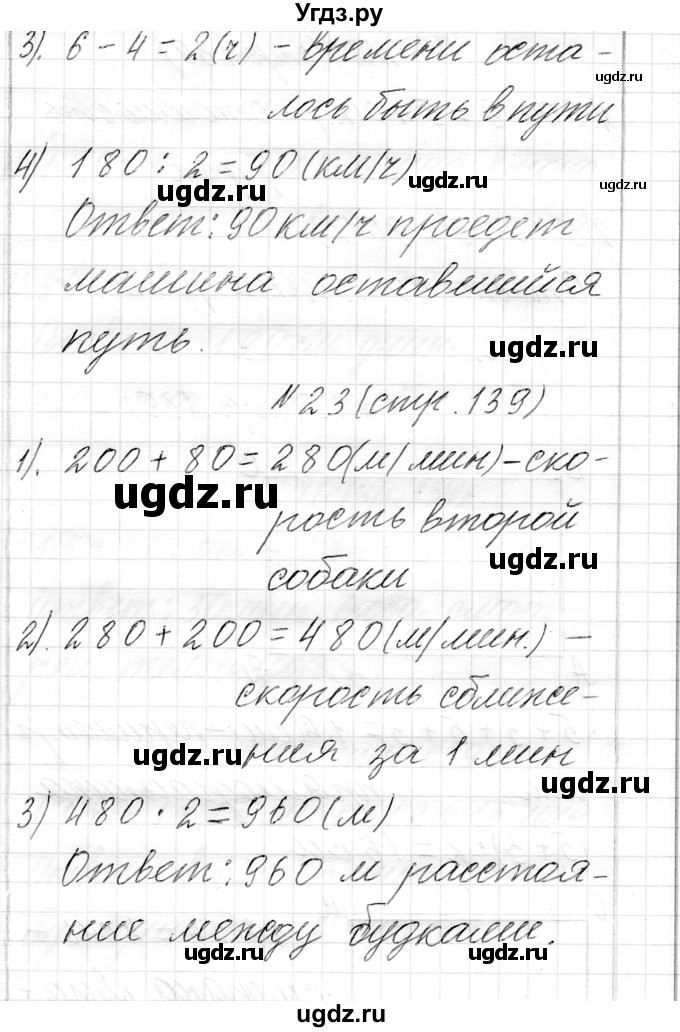 Угдз.ру
3). 6 - 4 = 2 (ч) - времени оста -
ugdz.ru
лось быть в пути
4) 180 : 2 = 90 (км/ч)
ugdz.ru
ugdz.ru
Ответ: 90 км/ч проедет
машина оставшийся
путь.
ugdz.ru
№ 23 (стр. 139)
1). 200 + 80 = 280 (м/мин) - ско-
ugdz.ru
рость второй
ugdz.ru
собаки
2). 280 + 200 = 480 (м/мин.) -
скорость сближе-
ugdz.ru
ния за 1 мин
ugdz.ru
3) 480 · 2 = 960 (м)
Ответ: 960 м расстоя-
ugdz.ru
ние между будками.
ugdz.ru